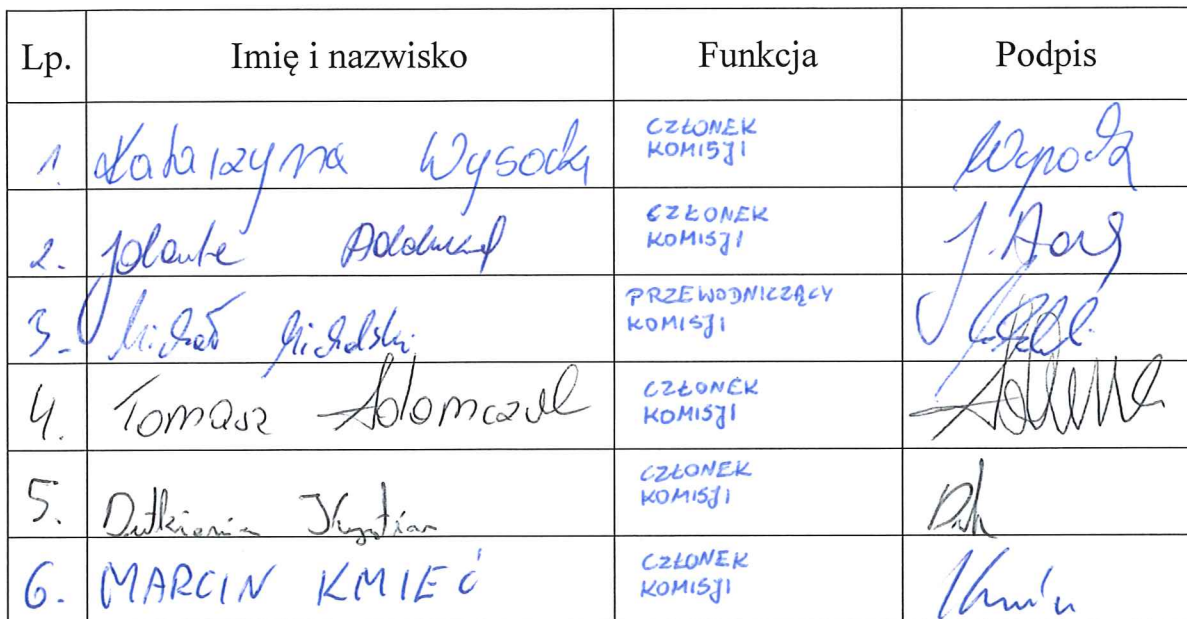 Lp. Imię i nazwisko Funkcja Podpis
1. Katarzyna Wysocka CZŁONEK KOMISJI Wysocka
2. Jolanta CZŁONEK KOMISJI
3. Michał Michalski PRZEWODNICZĄCY KOMISJI
4. Tomasz Adamczyk CZŁONEK KOMISJI
5. Dutkiewicz Krystian CZŁONEK KOMISJI
6. MARCIN KMIEĆ CZŁONEK KOMISJI